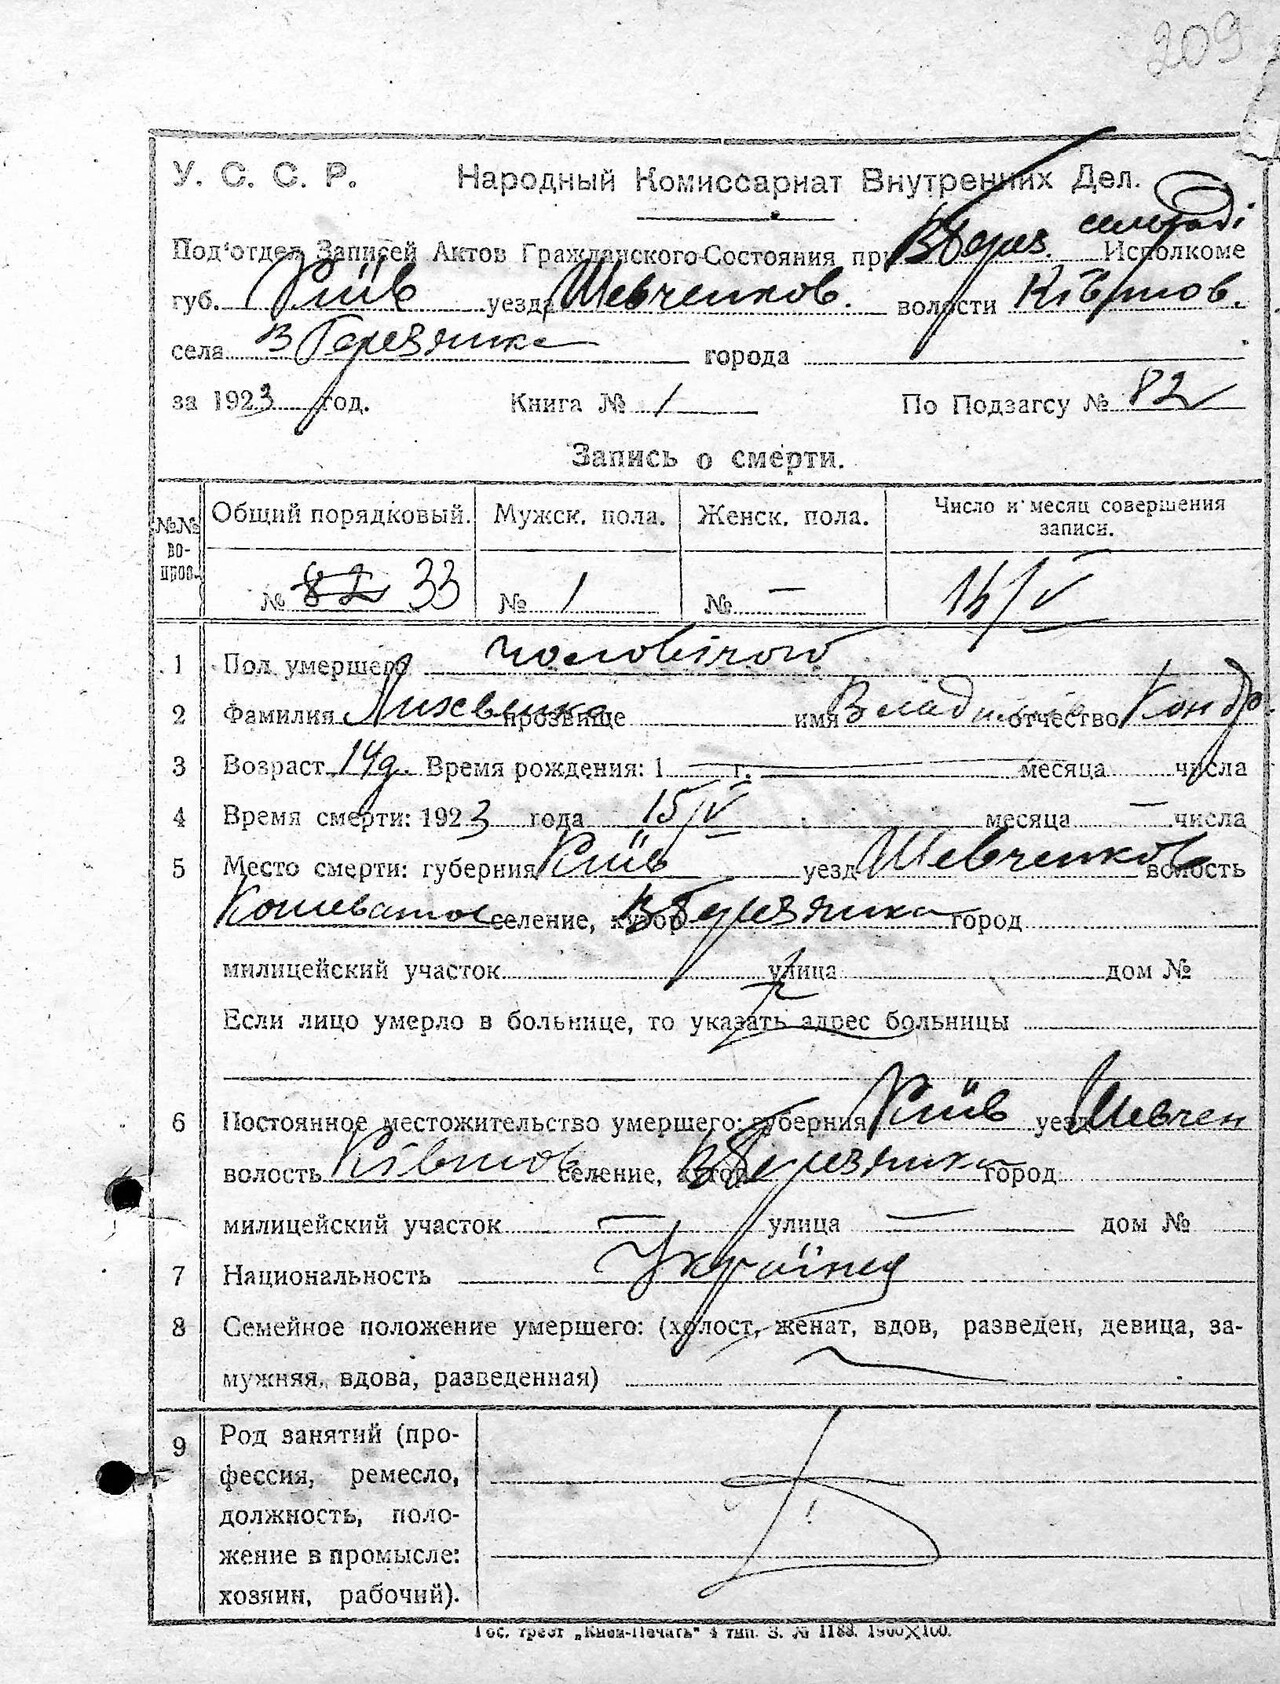 209
У. С. С. Р. Народный Комиссариат Внутренних Дел.
Под'отдел Записей Актов Гражданского Состояния при В Берез. сельраді Исполкоме
губ. Київ уезда Шевченков. волости Ківшов.
села В Березянка города
за 1923 год. Книга № 1 По Подзагсу № 82
Запись о смерти.
№№ во-прос. Общий порядковый. Мужск. пола. Женск. пола. Число и месяц совершения записи.
№ 82 33 № 1 № —
1 Пол умершего чоловічого
2 Фамилия прозвище имя Владимір отчество Кондр.
3 Возраст 14 д. Время рождения: 1 г. месяца числа
4 Время смерти: 1923 года 15/V месяца — числа
5 Место смерти: губерния Київ уезд Шевченков волость
Кошеватое селение, хутор В Березянка город
милицейский участок улица дом №
Если лицо умерло в больнице, то указать адрес больницы
6 Постоянное местожительство умершего: губерния Київ уезд Шевчен
волость Ківшов селение, хутор В Березянка город
милицейский участок — улица — дом №
7 Национальность Українец
8 Семейное положение умершего: (холост, женат, вдов, разведен, девица, за-
мужняя, вдова, разведенная)
9 Род занятий (про-
фессия, ремесло,
должность, поло-
жение в промысле:
хозяин, рабочий).
Гос. трест „Киев-Печать" 4 тип. З. № 1188. 1900×100.